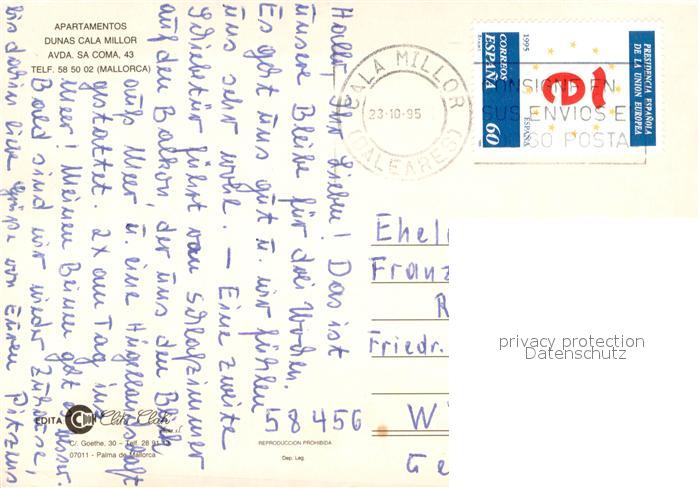 APARTAMENTOS
DUNAS CALA MILLOR
AVDA. SA COMA, 43
TELF. 58 50 02 (MALLORCA)
Hallo, Ihr Lieben! Das ist
unsere Bleibe für drei Wochen.
Es geht uns gut u. wir fühlen
uns sehr wohl. – Eine zweite
führt vom Schlafzimmer
auf den Balkon der uns den Blick
aufs Meer u. eine Hügellandschaft
gestattet. 2x am Tag in's
Meer! Meinen Beinen geht es besser.
Bald sind wir wieder Zuhause,
bis dahin liebe Grüße von Euren
CALA MILLOR
23-10-95
(BALEARES)
CONSIGNE EN
SUS ENVIOS E
POSTA
1995
CORREOS
ESPAÑA
60
ESPAÑA
PRESIDENCIA ESPAÑOLA
DE LA UNION EUROPEA
Ehel
Franz
R
Friedr.
58456 Wi
Ge
privacy protection
Datenschutz
EDITA
C/. Goethe, 30 - Telf. 28 91
07011 - Palma de Mallorca
REPRODUCCION PROHIBIDA
Dep. Leg.